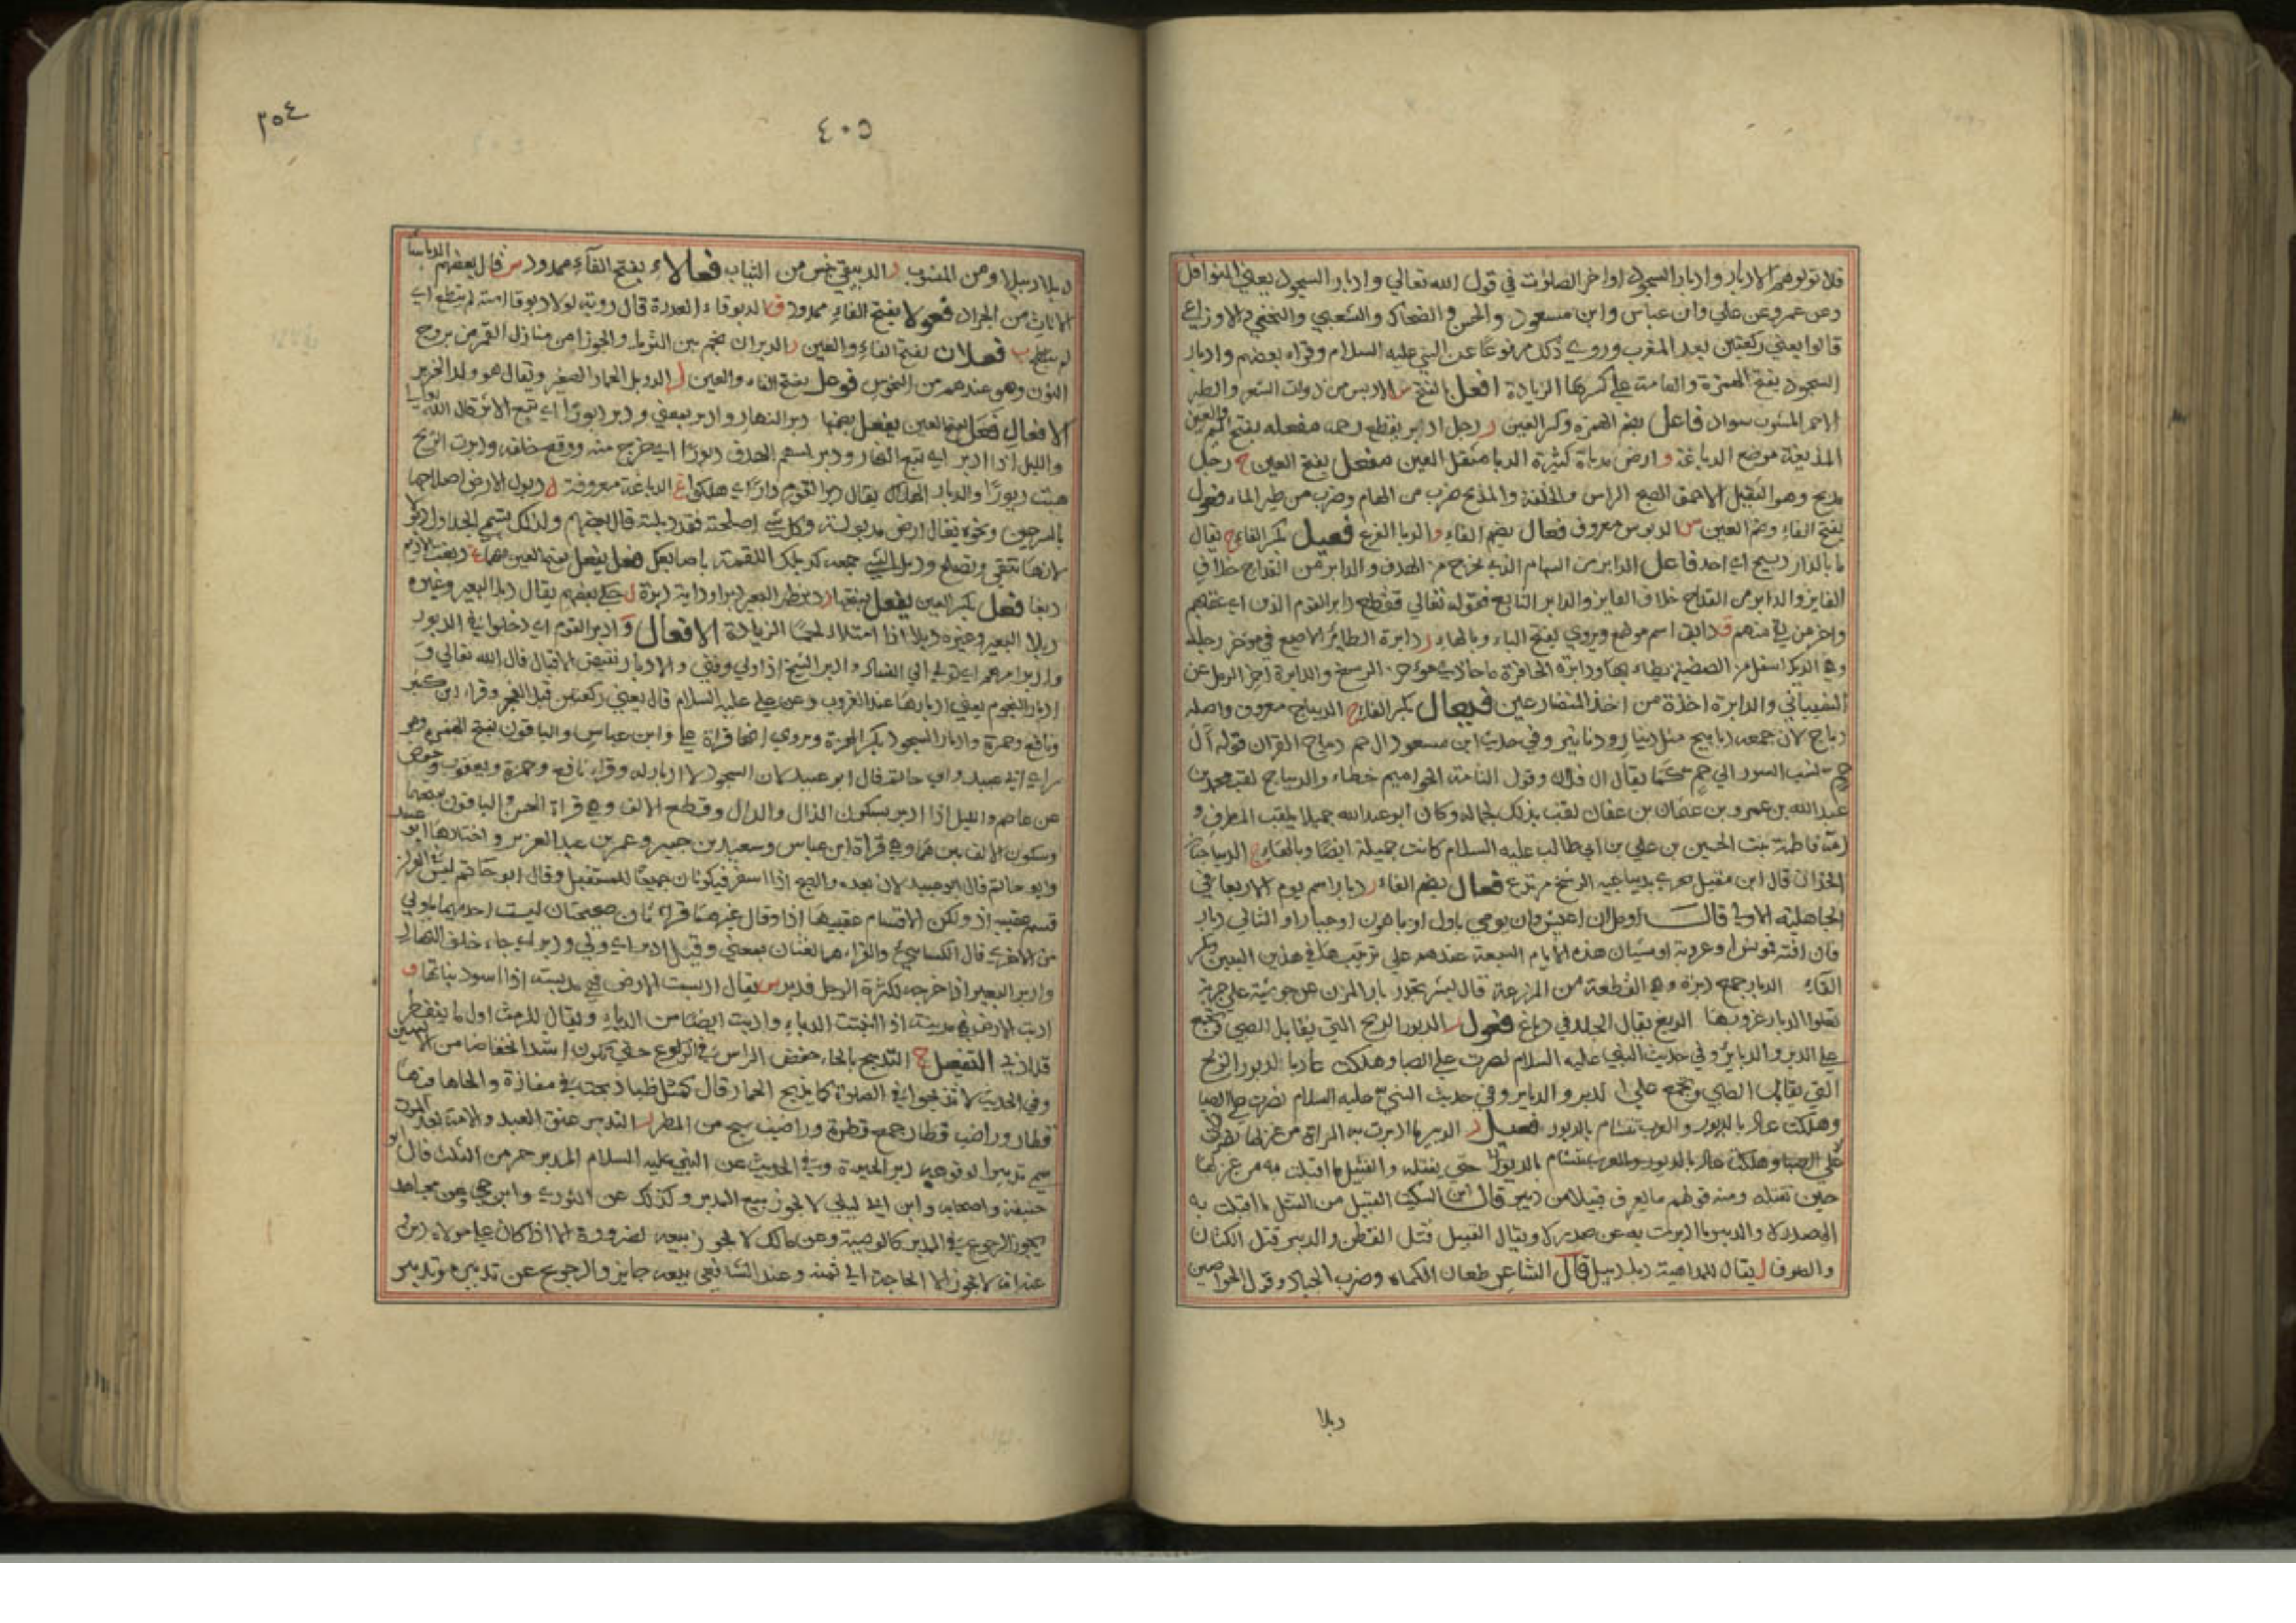 فلا تولوهم الادبار وادبار السجود اواخر الصلوت في قول الله تعالي وادبار السجود يعني النوافل
وعن عمر وعن علي وابن عباس وابن مسعود والحسن والضحاك والشعبي والنخعي والاوزاعي
قالوا يعني ركعتين بعد المغرب وروي ذلك مرفوعا عن النبي عليه السلام وقراه بعضهم وادبار
السجود بفتح الهمزة والعامة علي كسرها الزيادة افعل بالفتح س الادبس من ذوات الشعر والطير
الاحمر المشوب سواد فاعل بضم الهمزة وكسر العين ر رجل ادابر يقطع رحمه مفعله بفتح الميم والعين
المدبغة موضع الدباغة و ارض مدباة كثيرة الدبا مثقل العين مفعل بفتح العين ح رجل
مدبح وهو الثقيل الاحمق القبيح الراس والخلقة والمدبح ضرب من الهام وضرب من طير الماء فعول
بفتح الفاء وضم العين س الدبوس معروف فعال بضم الفاء و الدبا القرع فعيل بكسر الفاء ح يقال
ما بالدار دبيح اي احد فاعل الدابر من السهام الذي يخرج من الهدف والدابر من القداح خلاف
الفايز والدابر من القداح خلاف الفايز والدابر التابع فقوله تعالي فقطع دابر القوم الذين اي عقبهم
واخر من بقي منهم ق دابق اسم موضع ويروي بفتح الباء وبالهاء ر دابرة الطائر الاصبع في موخر رجله
وهي الديك اسفل من الصيصية يطاء بها ودابرة الحافر ما حاذي موخر الرسغ والدابرة اخر الرمل عن
الشيباني والدابرة اخذة من اخذ المتصارعين فيعال بكسر الفاء ح الديباج معروف واصله
دباج لان جمعه دبابيج مثل دينار ودنانير وفي حديث ابن مسعود ال حم ديباج القران قوله آل
حم نسب السور الي حم كما يقال ال فلان وقول العامة الحواميم خطاء والديباج لقب محمد بن
عبد الله بن عمرو بن عثمان بن عفان لقب بذلك لجماله وكان ابو عبد الله جميلا يلقب المطرف و
امه فاطمة بنت الحسين بن علي بن ابي طالب عليه السلام كانت جميلة ايضا وبالهاء ج الديباجتان
الخدان قال ابن مقبل يجري بديباجتيه الرشح مرتدع فعال بضم الفاء ر دبار اسم يوم الاربعا في
الجاهلية الاولي قال اومل ان اعيش وان يومي باول او باهون او جبار او التالي دبار
فان افته فمونس او عروبة او شيار هذه الايام السبعة عندهم علي ترتيبها في هذين البيتين بكسر
الفاء الدبار جمع دبرة وهي القطعة من المزرعة قال بشر تحدر ماء المزن عن جرشية علي جربة
تعلوا الدبار غروبها الدبغ يقال الجلد في دباغ فعول ر الدبور الريح التي يقابل الصبي وتجمع
علي الدبر والدبائر وفي حديث النبي عليه السلام نصرت علي الصبا وهلكت عاد بالدبور الريح
التي يقابل الصبي وتجمع علي الدبر والدباير وفي حديث النبي عليه السلام نصرت علي الصبا
وهلكت عاد بالدبور والعرب تتشام بالدبور فعيل ر الدبير ما ادبرت به المراة من غزلها
علي الصبا وهلكت عاد بالدبور والعرب تتشام بالدبور حتي يفتله والقبيل ما اقبلت به من غزلها
حين تفتله ومنه قولهم ما يعرف قبيلا من دبير قال ابن السكيت القبيل من الفتل ما اقبلت به
الي صدرك والدبير ما ادبرت به عن صدرك ويقال القبيل فتل القطن والدبير فتل الكتان
والصوف ل يقال للداهية دبل دبيل قال الشاعر طعان الكماه وضرب الجياد وقول الحواصن
دبلا
٤٠٥
٣٥٤
دبلا دبيلا ومن المنسوب ق الدبيقي جنس من الثياب فعالاء بفتح الفاء ممدود س قال بعضهم الدباساء
الاناث من الجراد فعولا بفتح الفاء ممدود ق الدبوقاء العذرة قال روبة لولا دبوقا استه لم يبطغ اي
لم يتلطخ فعلان بفتح الفاء والعين ر الدبران نجم بين الثريا والجوزا من منازل القمر من بروج
الثور وهو عندهم من النحوس فوعل بفتح الفاء والعين ل الدوبل الحمار الصغير ويقال هو ولد الخنزير
الافعال فعل بفتح العين يفعل بضمها دبر النهار وادبر بمعني ودبر دبورا اي تبع الاثر قال الله تعالي
والليل اذا ادبر اي تبع النهار ودبر السهم الهدف دبورا اي خرج منه ووقع خلفه ودبرت الريح
هبت دبورا والدبار الهلاك يقال دبر القوم دارا اي هلكوا غ الدباغة معروفة ل دبول الارض اصلاحها
بالسرجين ونحوه يقال ارض مدبولة وكل شي اصلحته فقد دبلته قال بعضهم ولذلك يسمي الجداول دبولا
لانها تنقي وتصلح ودبل الشي جمعه كدبلك اللقمة باصابعك فعل يفعل بفتح العين فيهما غ دبغت الاديم
دبغا فعل بكسر العين يفعل بفتحها ر دبر ظهر البعير دبرا ودابة دبرة ل حكي بعضهم يقال دبل البعير وغيره
دبلا البعير وغيره دبلا اذا امتلاء لحما الزيادة الافعال ر ادبر القوم اي دخلوا في الدبور
وادبر امرهم اي تولي الي الفساد وادبر الشيخ اذا ولي وفني والادبار نقيض الاقبال قال الله تعالي و
ادبار النجوم يعني ادبارها عند الغروب وعن علي عليه السلام قال يعني ركعتين قبل الفجر وقراء ابن كثير
ونافع وحمزة وادبار السجود بكسر الهمزة ويروي انها قراة علي وابن عباس والباقون بفتح الهمزة وهو
راي ابي عبيد وابي حاتم قال ابو عبيد لان السجود لا ادبار له وقراء نافع وحمزة ويعقوب وحفص
عن عاصم والليل اذا ادبر بسكون الذال والدال وقطع الالف وهي قراة الحسن والباقون بفتحهما
وسكون الالف بين هما وهي قراة ابن عباس وسعيد بن جبير وعمر بن عبد العزيز واختارها ابو عبيد
وابو حاتم قال ابو عبيد لان بعده والصبح اذا اسفر فيكونان جميعا للمستقبل وقال ابو حاتم ليس في القران
قسم عقيبه اذ ولكن الاقسام عقيبها اذا وقال غيرهما قراء تان صحيحتان ليست احديهما باولي
من الاخري قال الكسائي والفراء هما لغتان بمعني وقيل ادبر اي ولي ودبر اي جاء خلف النهار
وادبر البعير اذا خرجه لكثرة الرحل فدبر س يقال ادبست الارض فهي مدبسة اذا اسود نباتها و
ادبت الارض فهي مدبية اذا انبتت الدباء وادبت ايضا من الدباء ويقال للرمث اول ما يتفطر
قد ادبي التفعيل ح التدبيح بالحاء خفض الراس في الركوع حتي تكون اشد انخفاضا من الاليتين
وفي الحديث لا تدبحوا في الصلوة كما يدبح الحمار قال كمثل ظبا دبحت في مفازة والجاها فيها
قطار وراضب قطار جمع قطرة وراضب سح من المطر ر التدبير عتق العبد والامة بعد الموت
سمي تدبيرا لوقوعه دبر الحيوة وفي الحديث عن النبي عليه السلام المدبر حر من الثلث قال ابو
حنيفة واصحابه وابن ابي ليلي لا يجوز بيع المدبر وكذلك عن الثوري وابن حي وعن مجاهد
يجوز الرجوع في المدبر كالوصية وعن مالك لا يجوز بيعه لضرورة الا اذا كان علي مولاه دين
عندنا لا يجوز الا الحاجة الي ثمنه وعند الشافعي بيعه جايز والرجوع عن تدبيره وتدبير